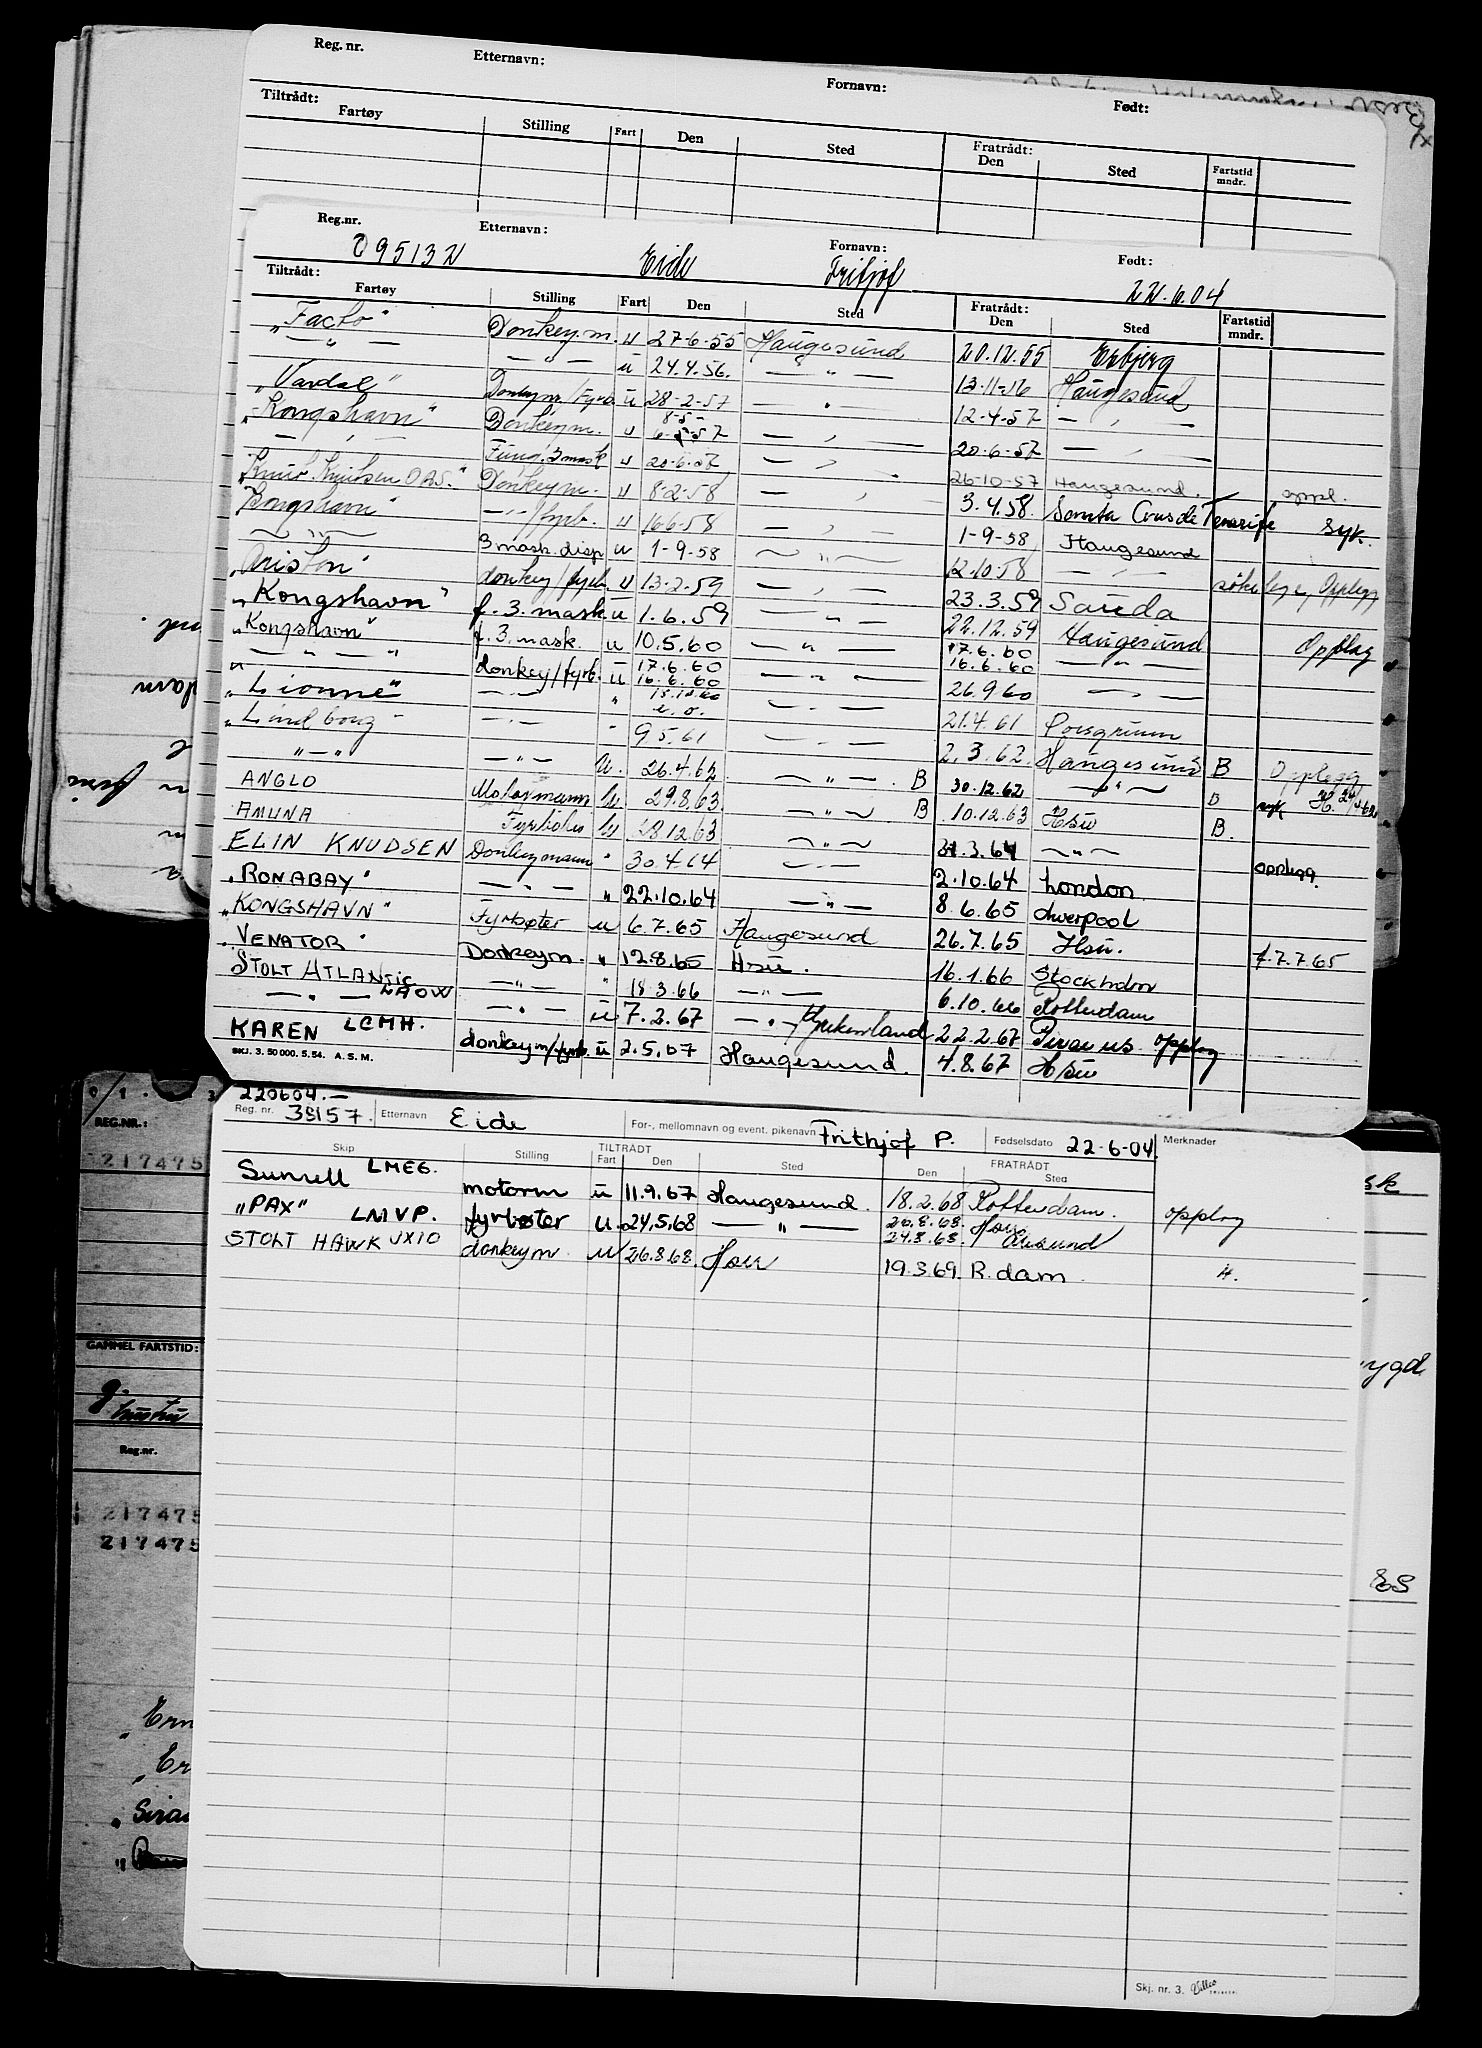 Reg. nr. Etternavn: Fornavn: Født:
Tiltrådt: Fratrådt:
Fartøy Stilling Fart Den Sted Den Sted Fartstid mndr.
Reg.nr. Etternavn: Fornavn: Født:
Eide Fritjof 22.6.04
Tiltrådt: Fratrådt:
Fartøy Stilling Fart Den Sted Den Sted Fartstid mndr.
„Facto" Donkey.m. u 27-6-55 Haugesund 20.12.55 Esbjerg
— " — — — u 24.4.56. — " — 13-11-56 Haugesund
„Vardal" Donkeym/fyrb. u 28-2-57 — " — 12-4-57 — " —
„Kongshavn" Donkeym. u 8-5- 6-5-57 — " — 20-6-57 — " —
— " — Fung. 3 mask u 20-6-57 — " — 26-10-57 Haugesund. oppl.
Knut Knutsen OAS." Donkeym. u 8-2-58 — " — 3.4.58. Santa Crus de Tenerife syk.
Kongshavn" —"—/fyrb. u 16-6-58 — " — 1-9-58 Haugesund
— " — 3 mask. disp u 1-9-58 — " — 12-10-58 — " —
„Ariston" donkey/fyrb. u 13-2-59 — " — 23.3.59 Sauda
„Kongshavn" f. 3. mask u 1.6.59 — " — 22.12.59 Haugesund Opplag
„Kongshavn" f. 3. mask. u 10.5.60 — " — 17.6.60 16.6.60 — " —
— " — " — donkey/fyrb. u 17.6.60 16.6.60 — " — 26.9.60 — " —
„Lionne" — " — " — " — 21.4.61 Porsgrunn
„Lindborg" — " — " 9.5.61 — " — 2.3.62. Haugesund B Opplegg
" — " — " — U. 26.4.62 — " — B 30.12.62 — " — B syk
ANGLO Motormann U 29.8.63 — " — B 10.12.63 Hsu B.
AMUNA Fyrbøter U 28.12.63 — " — 21.3.64 — " — opplegg.
ELIN KNUDSEN Donkeymann " 30.4.64 — " — 2.10.64 London
„RONABAY" — " — " 22.10.64 — " — 8.6.65 Liverpool
„KONGSHAVN" Fyrbøter u 6.7.65 Haugesund 26.7.65 Hsu. f. 7.7.65
„VENATOR" Donkeym. " 12.8.65 Hsu. 16.1.66 Stockholm
STOLT ATLANTIC — " — " 18.3.66 — " — 6.10.66 Rotterdam
— " — LAOW — " — u. 7.2.67 — " — 22.2.67 Pireus opplag
KAREN LCMH. donkeym/fyrb. u 2.5.67 Haugesund. 4.8.67 Hsu
SKJ. 3. 50 000. 5. 54. A. S. M.
220604.—
Reg. nr. 38157. Etternavn Eide For-, mellomnavn og event. pikenavn Frithjof P. Fødselsdato 22-6-04. Merknader
TILTRÅDT FRATRÅDT
Skip Stilling Fart Den Sted Den Sted
Sunrell LMEG. motorm u 11.9.67 Haugesund. 18.2.68 Rotterdam. opplag
„PAX" LMVP. fyrbøter u. 24.5.68 — " — 26.8.68. 24.8.68. Hsu Ålesund
STOLT HAWK JXIO donkeym u 26.8.68. Hsu 19.3.69. R.dam H.
Skj. nr. 3.
REG.NR.:
217475
GAMMEL FARTSTID:
Reg.nr.
217475
217475